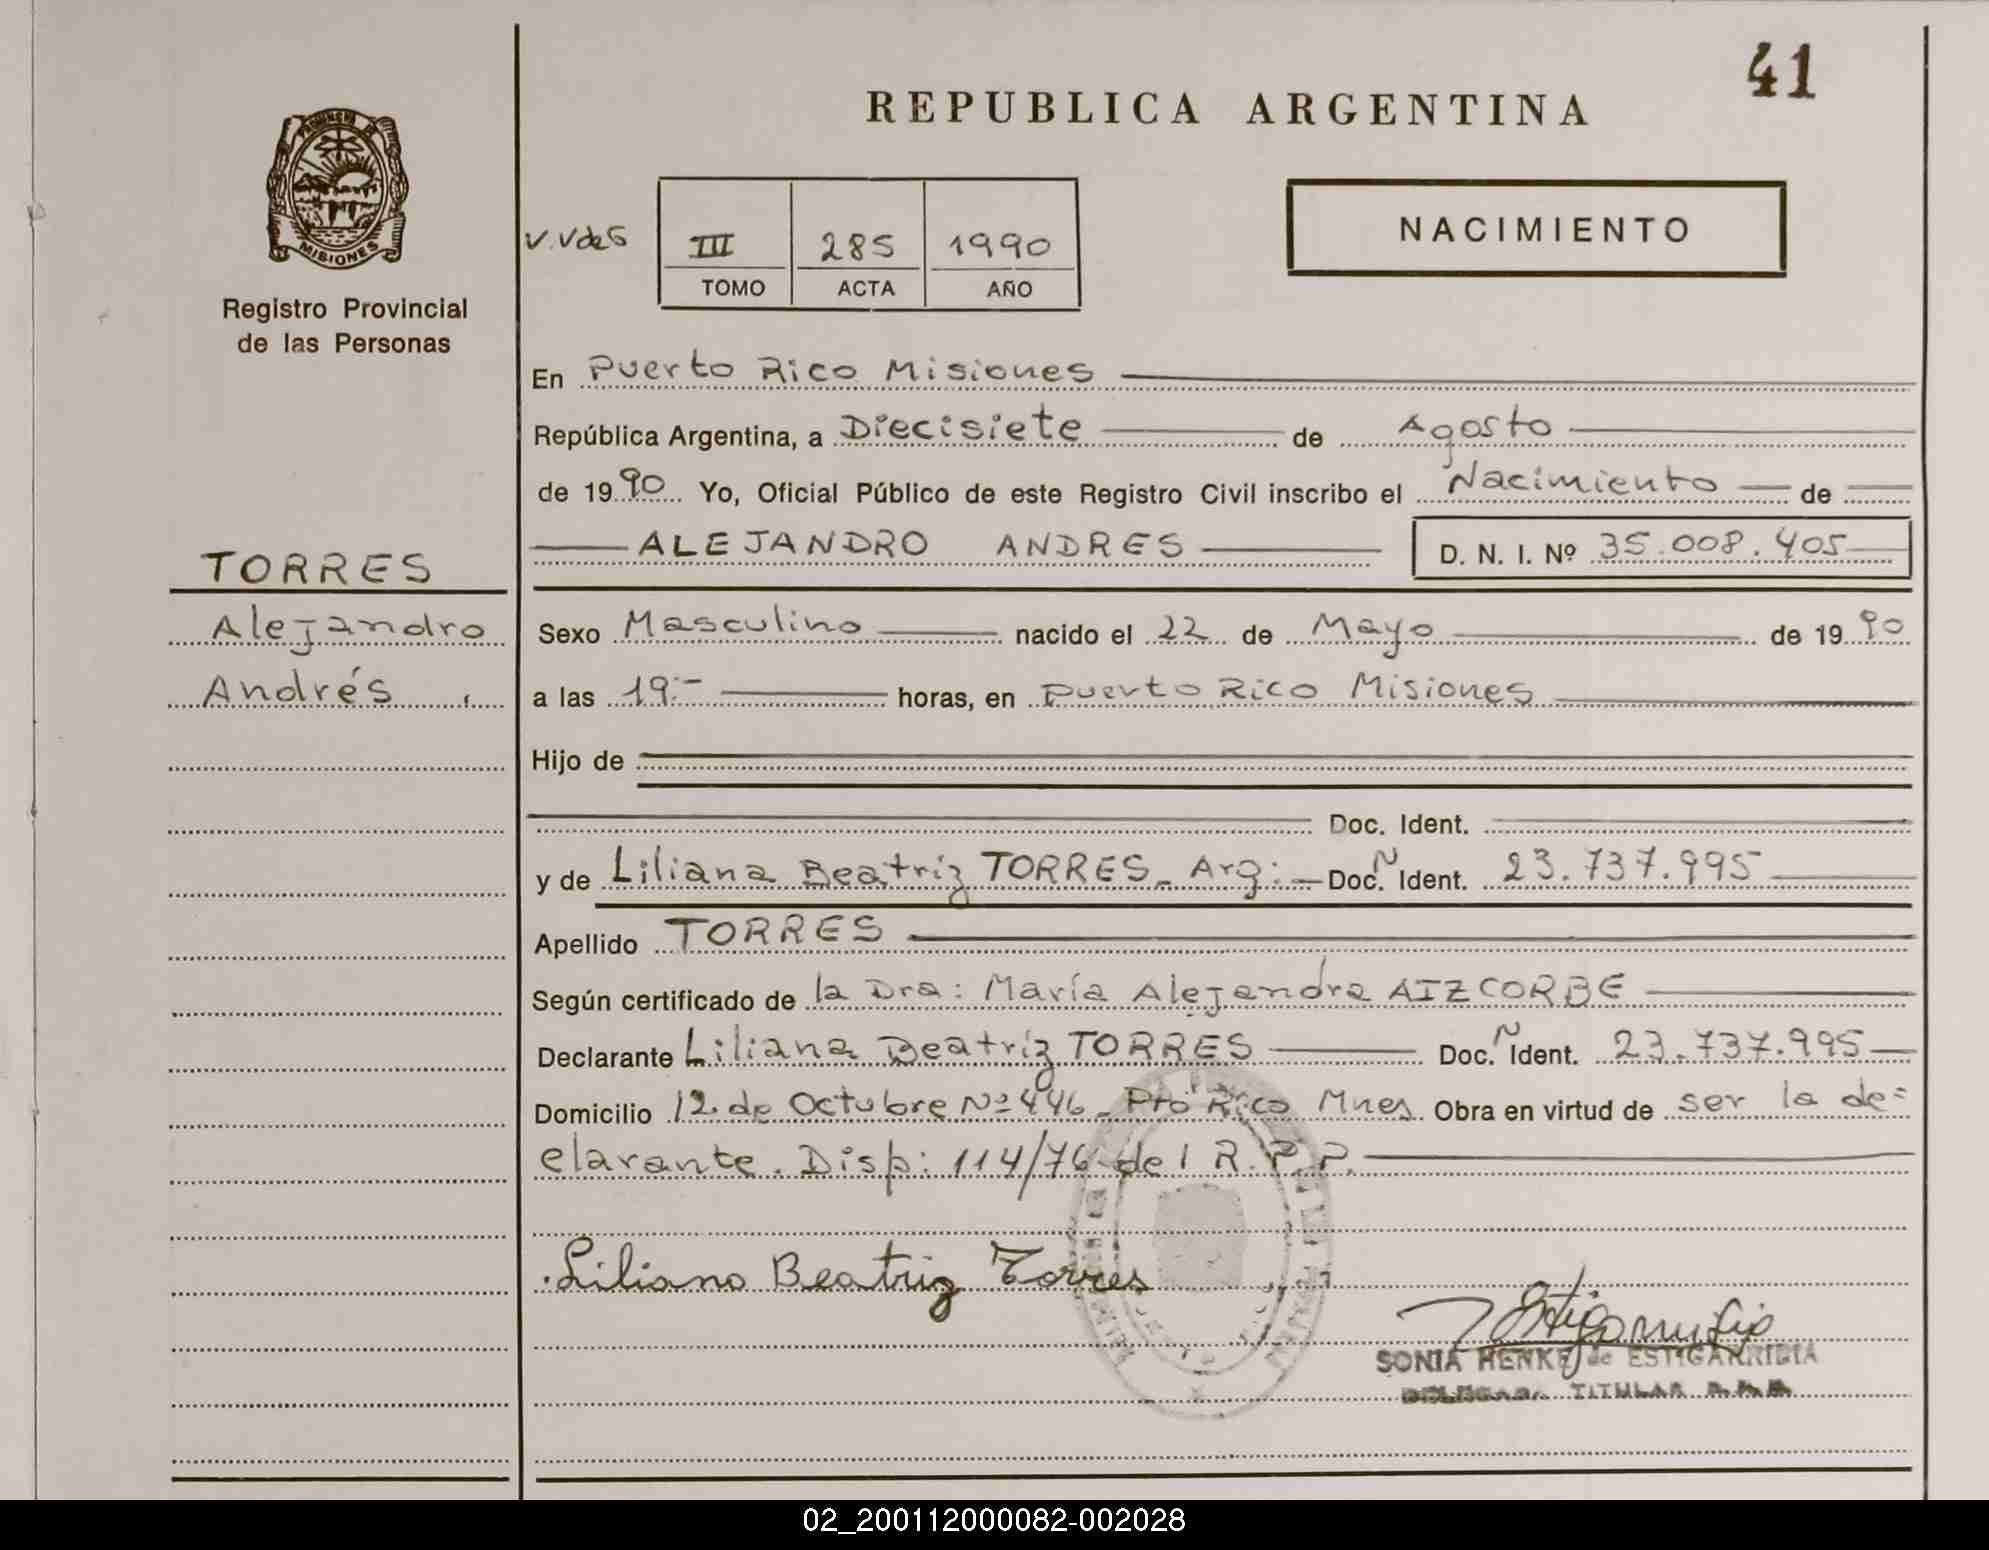 41
REPUBLICA ARGENTINA
PROVINCIA DE
MISIONES
Registro Provincial
de las Personas
V. Vdes
III 285 1990
TOMO ACTA AÑO
NACIMIENTO
En Puerto Rico Misiones
República Argentina, a Diecisiete de Agosto
de 1990 Yo, Oficial Público de este Registro Civil inscribo el Nacimiento de
ALEJANDRO ANDRES D. N. I. Nº 35.008.405
TORRES
Alejandro
Andrés
Sexo Masculino nacido el 22 de Mayo de 1990
a las 19:- horas, en Puerto Rico Misiones
Hijo de
Doc. Ident.
y de Liliana Beatriz TORRES- Arg:- Doc. N Ident. 23.737.995
Apellido TORRES
Según certificado de la Dra: María Alejandra AIZCORBE
Declarante Liliana Beatriz TORRES Doc. N Ident. 23.737.995
Domicilio 12 de Octubre Nº 446- Pto Rico Mnes Obra en virtud de ser la de=
clarante. Disp: 114/76 del R.P.P.
Liliana Beatriz Torres
SONIA HENKE de ESTIGARRIBIA
TITULAR
02_200112000082-002028